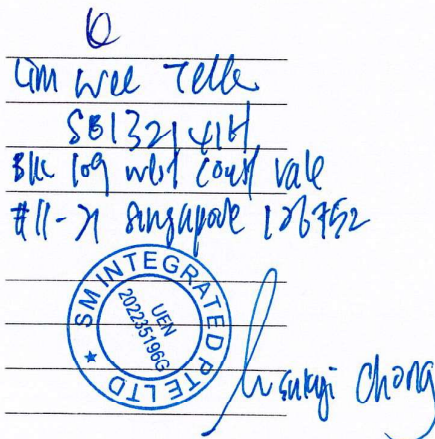 Lim Wee
S8132141H
Blk 109 West Coast Vale
#11-21 Singapore 126752
SM INTEGRATED PTE LTD ★
UEN
202235196G
Chong